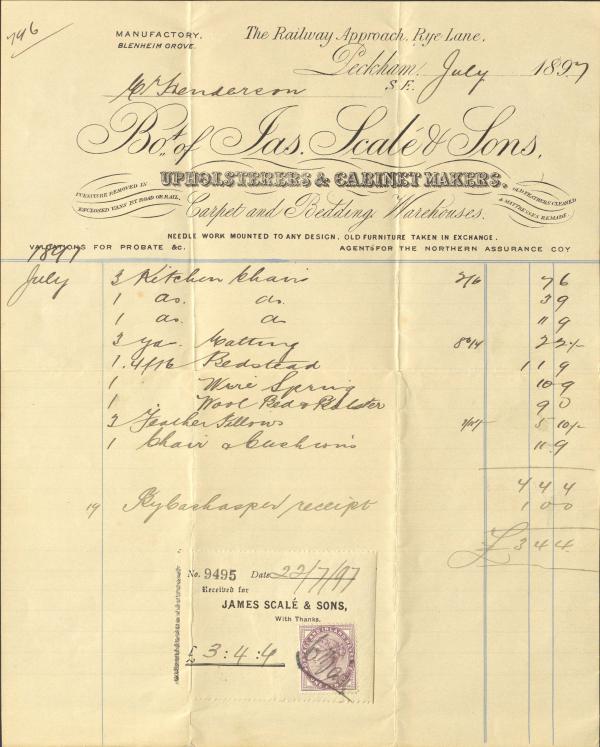 746
MANUFACTORY.
BLENHEIM GROVE.
The Railway Approach, Rye Lane,
Peckham. S.E. July 1897
Mr Henderson
Bot. of Jas. Scalé & Sons,
UPHOLSTERERS & CABINET MAKERS,
FURNITURE REMOVED IN
ENCLOSED VANS BY ROAD OR RAIL.
OLD FEATHERS CLEANED
& MATTRESSES REMADE
Carpet and Bedding Warehouses.
NEEDLE WORK MOUNTED TO ANY DESIGN. OLD FURNITURE TAKEN IN EXCHANGE.
VALUATIONS FOR PROBATE &c. AGENTS FOR THE NORTHERN ASSURANCE COY
1897
July 3 Kitchen Chairs 2/6 7 6
1 do. do. 3 9
1 do. do 11 9
3 yds. Matting 2 2
1. 4ft6 Bedstead 1 1 9
1 Wire Spring 10 9
1 Wool Bed & Bolster 9 0
2 Feather Pillows 5 10
1 Chair & Cushions 11 9
4 4 4
19 By Cash as per receipt 1 0 0
£ 3 4 4
No. 9495 Date 22/7/97
Received for
JAMES SCALÉ & SONS,
With Thanks.
£ 3 : 4 : 4